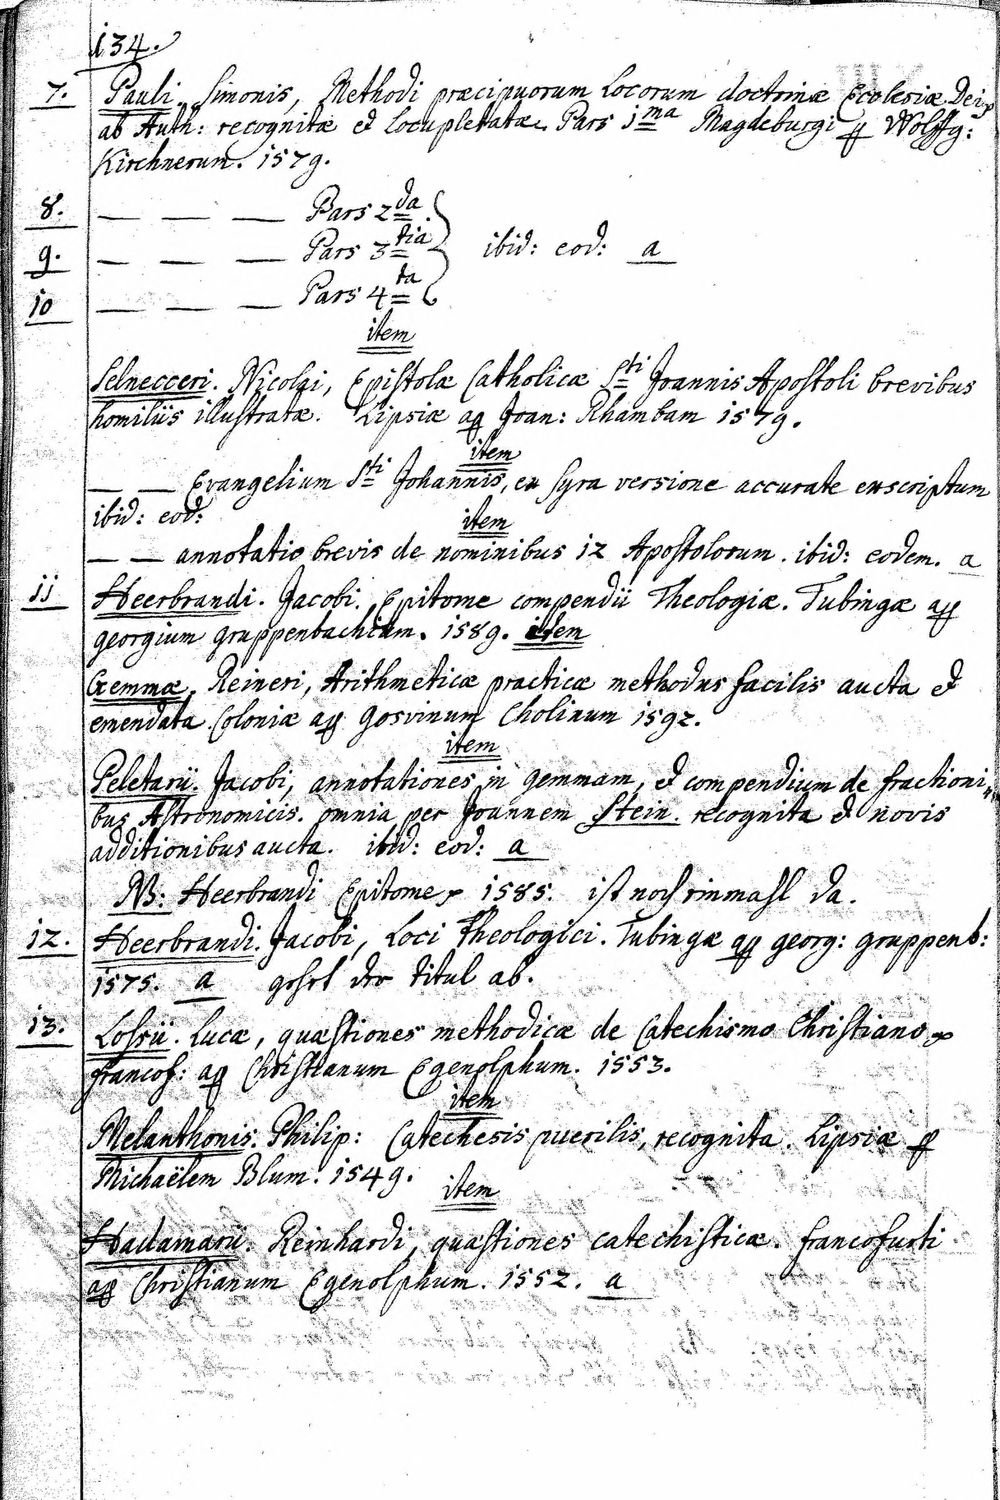 134.
7. Pauli. Simonis, Methodi præcipuorum Locorum doctrinæ Ecclesiæ Dei
ab Auth: recognitæ et locupletatæ. Pars 1ma Magdeburgi p Wolffg:
Kirchnerum. 1579.
8. — — — Pars 2da.
9. — — — Pars 3tia ibid: eod: a
10 — — — Pars 4ta
item
Selnecceri. Nicolai, Epistolæ Catholicæ Sti Joannis Apostoli brevibus
homiliis illustratæ. Lipsiæ ap Joan: Rhambam 1579.
item
— — Evangelium Sti Johannis, ex Syra versione accurate exscriptum
ibid: eod:
item
— — annotatio brevis de nominibus 12 Apostolorum. ibid: eodem. a
11 Heerbrandi. Jacobi. Epitome compendii Theologiæ. Tubingæ ap
georgium gruppenbachium. 1589. item
Gemmæ, Reineri, Arithmeticæ practicæ methodus facilis aucta et
emendata Coloniæ ap Gosvinum Cholinum 1592.
item
Peletarii. Jacobi, annotationes in gemmam, et compendium de fractioni
bus Astronomicis. omnia per Joannem Stein. recognita et novis
additionibus aucta. ibid: eod: a
NB: Heerbrandi Epitome 1585. ist noch einmahl da.
12. Heerbrandi. Jacobi, Loci Theologici. Tubingæ ap georg: gruppenb:
1575. a gehet der Titul ab.
13. Lossii. Lucæ, quæstiones methodicæ de Catechismo Christiano
francof: ap Christianum Egenolphum. 1553.
item
Melanthonis. Philip: Catechesis puerilis, recognita. Lipsiæ p
Michaëlem Blum. 1549.
item
Hadamarii. Reinhardi, quæstiones catechisticæ. francofurti
ap Christianum Egenolphum. 1552. a